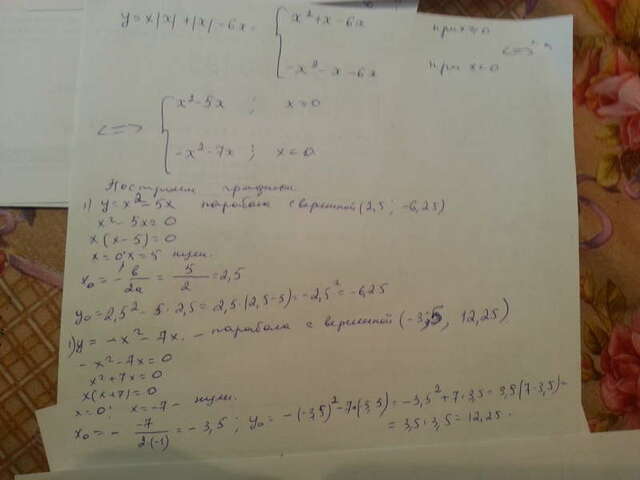 y = x|x| + |x| - 6x. { x² + x - 6x при x ≥ 0 <=>
-x² - x - 6x при x < 0
<=> { x² - 5x ; x ≥ 0
-x² - 7x ; x < 0
Построим графики
1) y = x² - 5x парабола с вершиной (2,5 ; -6,25)
x² - 5x = 0
x(x-5) = 0
x = 0; x = 5 нули.
x₀ = - b/2a = 5/2 = 2,5
y₀ = 2,5² - 5·2,5 = 2,5·(2,5-5) = -2,5² = -6,25
1) y = -x² - 7x. - парабола с вершиной (-3,5, 12,25)
-x² - 7x = 0
x² + 7x = 0
x(x+7) = 0
x = 0; x = -7 - нули.
x₀ = - -7/2(-1) = -3,5 ; y₀ = -(-3,5)² - 7·(-3,5) = -3,5² + 7·3,5 = 3,5(7-3,5) =
= 3,5·3,5 = 12,25.